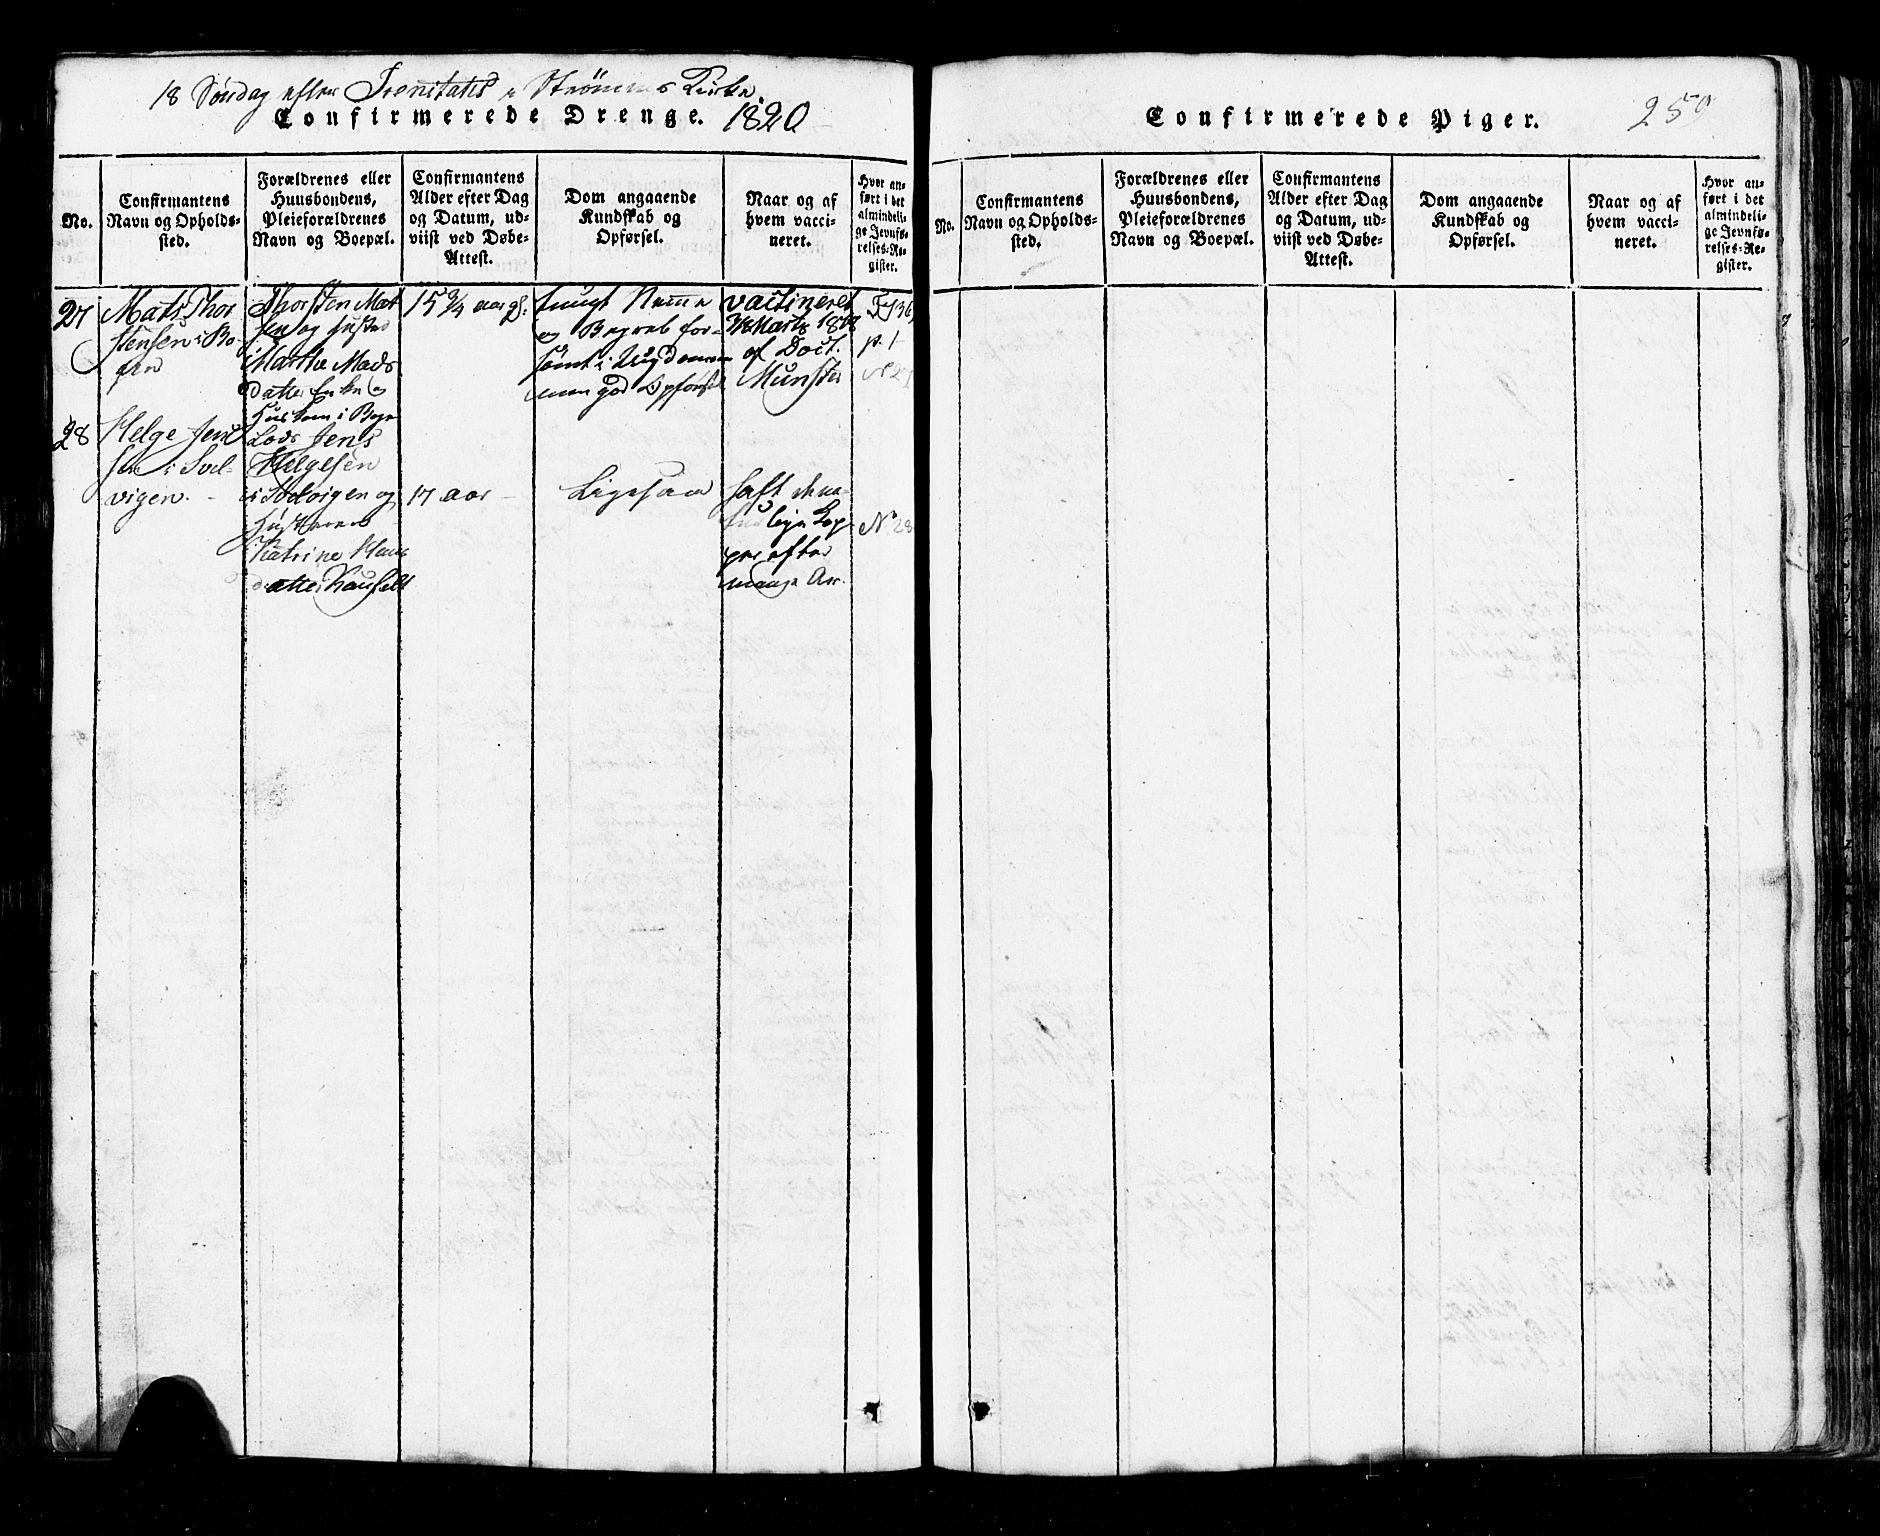 18 Søndag efter Trenitatis i Strømms Kirke
Confirmerede Drenge. 1820
No.
Confirmantens
Navn og Opholds-
sted.
Forældrenes eller
Huusbondens,
Pleieforældrenes
Navn og Boepæl.
Confirmantens
Alder efter Dag
og Datum, ud-
viist ved Døbe-
Attest.
Dom angaaende
Kundskab og
Opførsel.
Naar og af
hvem vacci-
neret.
Hvor an-
ført i det
almindeli-
ge Jevnfø-
relses-Re-
gister.
27
Mats Thor
stensen i Bo
Thorsten Mat
sen og Hustrue
Marthe Mads
datter
15 3/4 aar gl:
tungt Nemme
og Begreb for-
sømt i Ungdommen
men god Opførsel
vaccineret
Marts 1818
af Doct.
Munster
p. 1
No 27
28
Helge Jen
sen i Svel-
vigen.
Lods Jens
Helgesen
i Svelvigen og
Hustrue
Katrine Hans
datter
17 aar
Ligesaa
haft de na-
Kop-
per efter
Nº 28
Confirmerede Piger.
250
No.
Confirmantens
Navn og Opholds-
sted.
Forældrenes eller
Huusbondens,
Pleieforældrenes
Navn og Boepæl.
Confirmantens
Alder efter Dag
og Datum, ud-
viist ved Døbe-
Attest.
Dom angaaende
Kundskab og
Opførsel.
Naar og af
hvem vacci-
neret.
Hvor an-
ført i det
almindeli-
ge Jevnfø-
relses-Re-
gister.